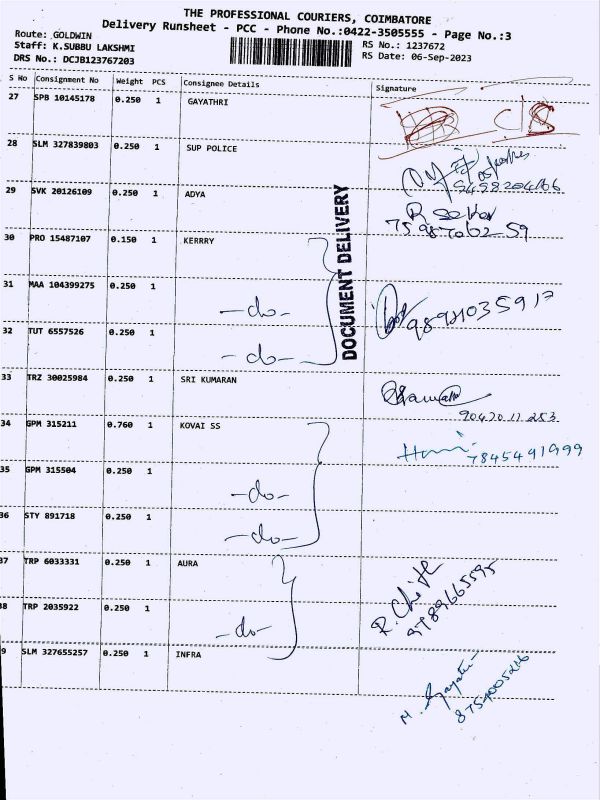 THE PROFESSIONAL COURIERS, COIMBATORE
Delivery Runsheet - PCC - Phone No.:0422-3505555 - Page No.:3
Route: GOLDWIN
Staff: K.SUBBU LAKSHMI
RS No.: 1237672
DRS No.: DCJB123767203
RS Date: 06-Sep-2023
S No Consignment No Weight PCS Consignee Details Signature
27 SPB 10145178 0.250 1 GAYATHRI
28 SLM 327839803 0.250 1 SUP POLICE
29 SVK 20126109 0.250 1 ADYA
R Sekar
30 PRO 15487107 0.150 1 KERRRY
31 MAA 104399275 0.250 1 -do-
32 TUT 6557526 0.250 1 -do-
DOCUMENT DELIVERY
33 TRZ 30025984 0.250 1 SRI KUMARAN
34 GPM 315211 0.760 1 KOVAI SS
7845491999
35 GPM 315504 0.250 1 -do-
36 STY 891718 0.250 1 -do-
37 TRP 6033331 0.250 1 AURA
9789665595
38 TRP 2035922 0.250 1 -do-
9 SLM 327655257 0.250 1 INFRA